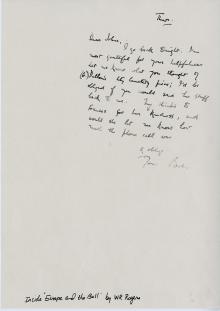 Thurs.
Dear John,
I go back tonight. I'm
most grateful for your helpfulness
Let me know what you thought of
my Cemetery piece; I'd be
obliged if you would send the stuff
back to me. My thanks to
for her kindness, and
would she let me know how
much the phone call was
Inside 'Europe and the Bull' by WR Rodgers